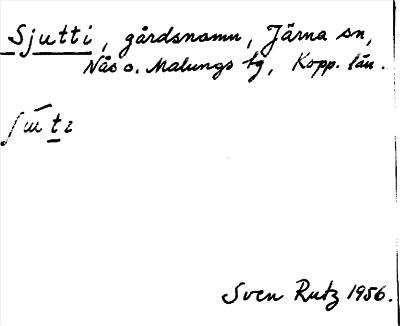 Sjutti, gårdsnamn, Järna sn,
Nås o. Malungs tg, Kopp. län.
Sven Rutz 1956.